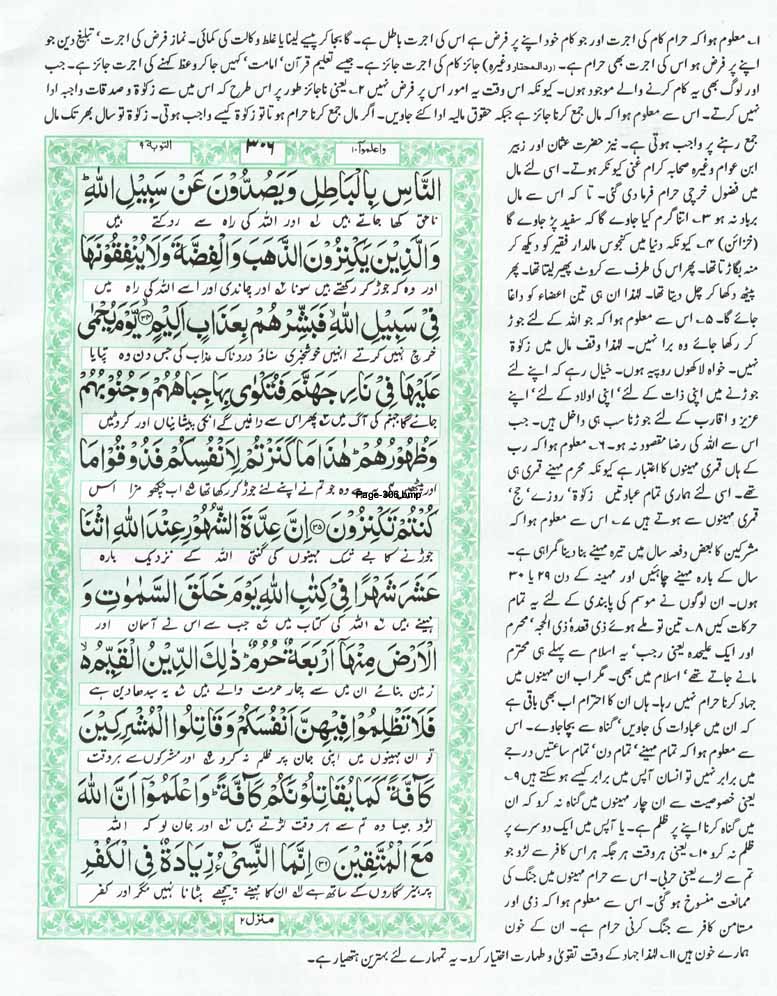 ۱۔ معلوم ہوا کہ حرام کام کی اجرت اور جو کام خود اپنے پر فرض ہے اس کی اجرت باطل ہے۔ گا بجا کر پیسے لینا یا غلط وکالت کی کمائی۔ نماز فرض کی اجرت' تبلیغ دین جو
اپنے پر فرض ہو اس کی اجرت بھی حرام ہے۔ (ردالمحتار وغیرہ) جائز کام کی اجرت جائز ہے۔ جیسے تعلیم قرآن' امامت' کہیں جا کر وعظ کہنے کی اجرت جائز ہے۔ جب
اور لوگ بھی یہ کام کرنے والے موجود ہوں۔ کیونکہ اس وقت یہ امور اس پر فرض نہیں ۲۔ یعنی ناجائز طور پر اس طرح کہ اس میں سے زکوٰۃ و صدقات واجبہ ادا
نہیں کرتے۔ اس سے معلوم ہوا کہ مال جمع کرنا جائز ہے جبکہ حقوق مالیہ ادا کئے جاویں۔ اگر مال جمع کرنا حرام ہوتا تو زکوٰۃ کیسے واجب ہوتی۔ زکوٰۃ تو سال بھر تک مال
جمع رہنے پر واجب ہوتی ہے۔ نیز حضرت عثمان اور زبیر
ابن عوام وغیرہ صحابہ کرام غنی کیونکر ہوتے۔ اسی لئے مال
میں فضول خرچی حرام فرما دی گئی۔ تا کہ اس سے مال
برباد نہ ہو ۳۔ اتنا گرم کیا جاوے گا کہ سفید پڑ جاوے گا
(خزائن) ۴۔ کیونکہ دنیا میں کنجوس مالدار فقیر کو دیکھ کر
منہ بگاڑتا تھا۔ پھر اس کی طرف سے کروٹ پھیر لیتا تھا۔ پھر
پیٹھ دکھا کر چل دیتا تھا۔ لہٰذا ان ہی تین اعضاء کو داغا
جائے گا۔ ۵۔ اس سے معلوم ہوا کہ جو اللہ کے لئے جوڑ
کر رکھا جائے وہ برا نہیں۔ لہٰذا وقف مال میں زکوٰۃ
نہیں۔ خواہ لاکھوں روپیہ ہوں۔ خیال رہے کہ اپنے لئے
جوڑنے میں اپنی ذات کے لئے' اپنی اولاد کے لئے' اپنے
عزیز و اقارب کے لئے جوڑنا سب ہی داخل ہیں۔ جب
اس سے اللہ کی رضا مقصود نہ ہو۔ ۶۔ معلوم ہوا کہ رب
کے ہاں قمری مہینوں کا اعتبار ہے کیونکہ محرم مہینے قمری ہی
تھے۔ اسی لئے ہماری تمام عبادتیں زکوٰۃ' روزے' حج'
قمری مہینوں سے ہوتے ہیں ۷۔ اس سے معلوم ہوا کہ
مشرکین کا بعض دفعہ سال میں تیرہ مہینے بنا دینا گمراہی ہے۔
سال کے بارہ مہینے چاہئیں اور مہینہ کے دن ۲۹ یا ۳۰
ہوں۔ ان لوگوں نے موسم کی پابندی کے لئے یہ تمام
حرکات کیں ۸۔ تین تو ملے ہوئے ذی قعدہ' ذی الحجہ' محرم
اور ایک علیحدہ یعنی رجب' یہ اسلام سے پہلے ہی محترم
مانے جاتے تھے' اسلام میں بھی۔ مگر اب ان مہینوں میں
جہاد کرنا حرام نہیں رہا۔ ہاں ان کا احترام اب بھی باقی ہے
کہ ان میں عبادات کی جاویں' گناہ سے بچا جاوے۔ اس
سے معلوم ہوا کہ تمام مہینے' تمام دن' تمام ساعتیں درجے
میں برابر نہیں تو انسان آپس میں برابر کیسے ہو سکتے ہیں ۹۔
یعنی خصوصیت سے ان چار مہینوں میں گناہ نہ کرو کہ ان
میں گناہ کرنا اپنے پر ظلم ہے۔ یا آپس میں ایک دوسرے پر
ظلم نہ کرو ۱۰۔ یعنی ہر وقت ہر جگہ ہر اس کافر سے لڑو جو
تم سے لڑے یعنی حربی۔ اس سے حرام مہینوں میں جنگ کی
ممانعت منسوخ ہو گئی۔ اس سے معلوم ہوا کہ ذمی اور
مستامن کافر سے جنگ کرنی حرام ہے۔ ان کے خون
ہمارے خون ہیں ۱۱۔ لہٰذا جہاد کے وقت تقویٰ و طہارت اختیار کرو۔ یہ تمہارے لئے بہترین ہتھیار ہے۔
واعلموا ۱۰
۳۰۶
التوبۃ ۹
النَّاسِ بِالْبَاطِلِ وَيَصُدُّوْنَ عَنْ سَبِيْلِ اللّٰهِ
ناحق کھا جاتے ہیں اور اللہ کی راہ سے روکتے ہیں
وَالَّذِيْنَ يَكْنِزُوْنَ الذَّهَبَ وَالْفِضَّةَ وَلَا يُنْفِقُوْنَهَا
اور وہ کہ جوڑ کر رکھتے ہیں سونا اور چاندی اور اسے اللہ کی راہ میں
فِيْ سَبِيْلِ اللّٰهِ فَبَشِّرْهُمْ بِعَذَابٍ اَلِيْمٍ ۳۴ يَّوْمَ يُحْمٰى
خرچ نہیں کرتے انہیں خوشخبری سناؤ دردناک عذاب کی جس دن وہ تپایا
عَلَيْهَا فِيْ نَارِ جَهَنَّمَ فَتُكْوٰى بِهَا جِبَاهُهُمْ وَجُنُوْبُهُمْ
جائے گا جہنم کی آگ میں پھر اس سے داغیں گے انکی پیشانیاں اور کروٹیں
وَظُهُوْرُهُمْ هٰذَا مَا كَنَزْتُمْ لِاَنْفُسِكُمْ فَذُوْقُوْا مَا
اور پیٹھیں ہے وہ جو تم نے اپنے لئے جوڑ کر رکھا تھا اب چکھو مزا اس
Page-306.bmp
كُنْتُمْ تَكْنِزُوْنَ ۳۵ اِنَّ عِدَّةَ الشُّهُوْرِ عِنْدَ اللّٰهِ اثْنَا
جوڑنے کا بے شک مہینوں کی گنتی اللہ کے نزدیک بارہ
عَشَرَ شَهْرًا فِيْ كِتٰبِ اللّٰهِ يَوْمَ خَلَقَ السَّمٰوٰتِ وَ
مہینے ہیں اللہ کی کتاب میں جب سے اس نے آسمان اور
الْاَرْضَ مِنْهَا اَرْبَعَةٌ حُرُمٌ ذٰلِكَ الدِّيْنُ الْقَيِّمُ
زمین بنائے ان میں سے چار حرمت والے ہیں یہ سیدھا دین ہے
فَلَا تَظْلِمُوْا فِيْهِنَّ اَنْفُسَكُمْ وَقَاتِلُوا الْمُشْرِكِيْنَ
تو ان مہینوں میں اپنی جان پر ظلم نہ کرو اور مشرکوں سے ہر وقت
كَآفَّةً كَمَا يُقَاتِلُوْنَكُمْ كَآفَّةً وَاعْلَمُوْٓا اَنَّ اللّٰهَ
لڑو جیسا وہ تم سے ہر وقت لڑتے ہیں اور جان لو کہ اللہ
مَعَ الْمُتَّقِيْنَ ۳۶ اِنَّمَا النَّسِيْٓءُ زِيَادَةٌ فِي الْكُفْرِ
پرہیزگاروں کے ساتھ ہے ان کا مہینے پیچھے ہٹانا نہیں مگر اور کفر
منزل ۲